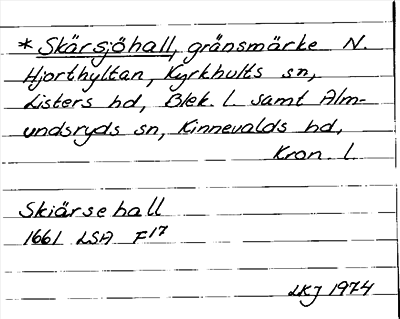 * Skärsjöhall, gränsmärke N.
Hjorthyltan, Kyrkhults sn,
Listers hd, Blek. l. samt Alm-
undsryds sn, Kinnevalds hd,
Kron. l.
Skiärse hall
1661 LSA F17
LKJ 1974